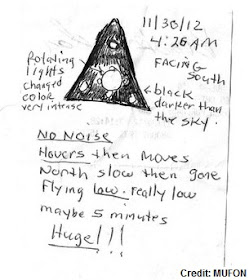 11/30/12
4:26 AM
FACING
South
Rotating
lights
changed
color
very intense
black
darker than
the sky.
NO NOISE
Hovers then moves
North slow then gone
Flying low. really low
maybe 5 minutes
Huge!!!
Credit: MUFON